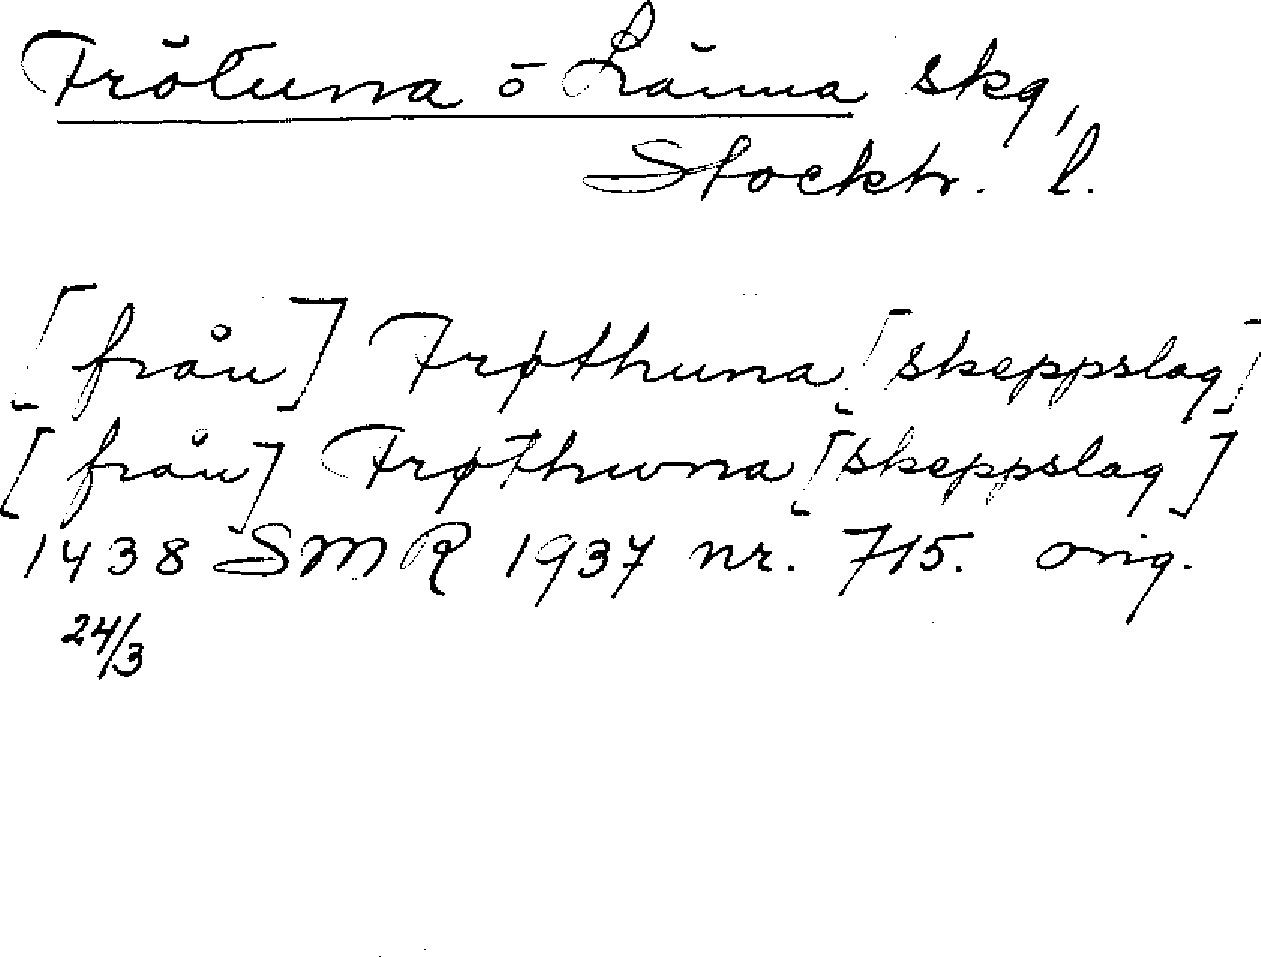 Frötuna o Länna skg,
Stockh. l.
[från] Frøthuna [skeppslag]
[från] Frøthwna [skeppslag]
1438 SMR 1937 nr. 715. orig.
24/3